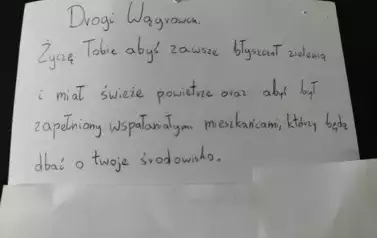 Drogi Wągrowcu.
Życzę Tobie abyś zawsze błyszczał zielenią
i miał świeże powietrze oraz abyś był
zapełniony wspaniałymi mieszkańcami, którzy będą
dbać o twoje środowisko.